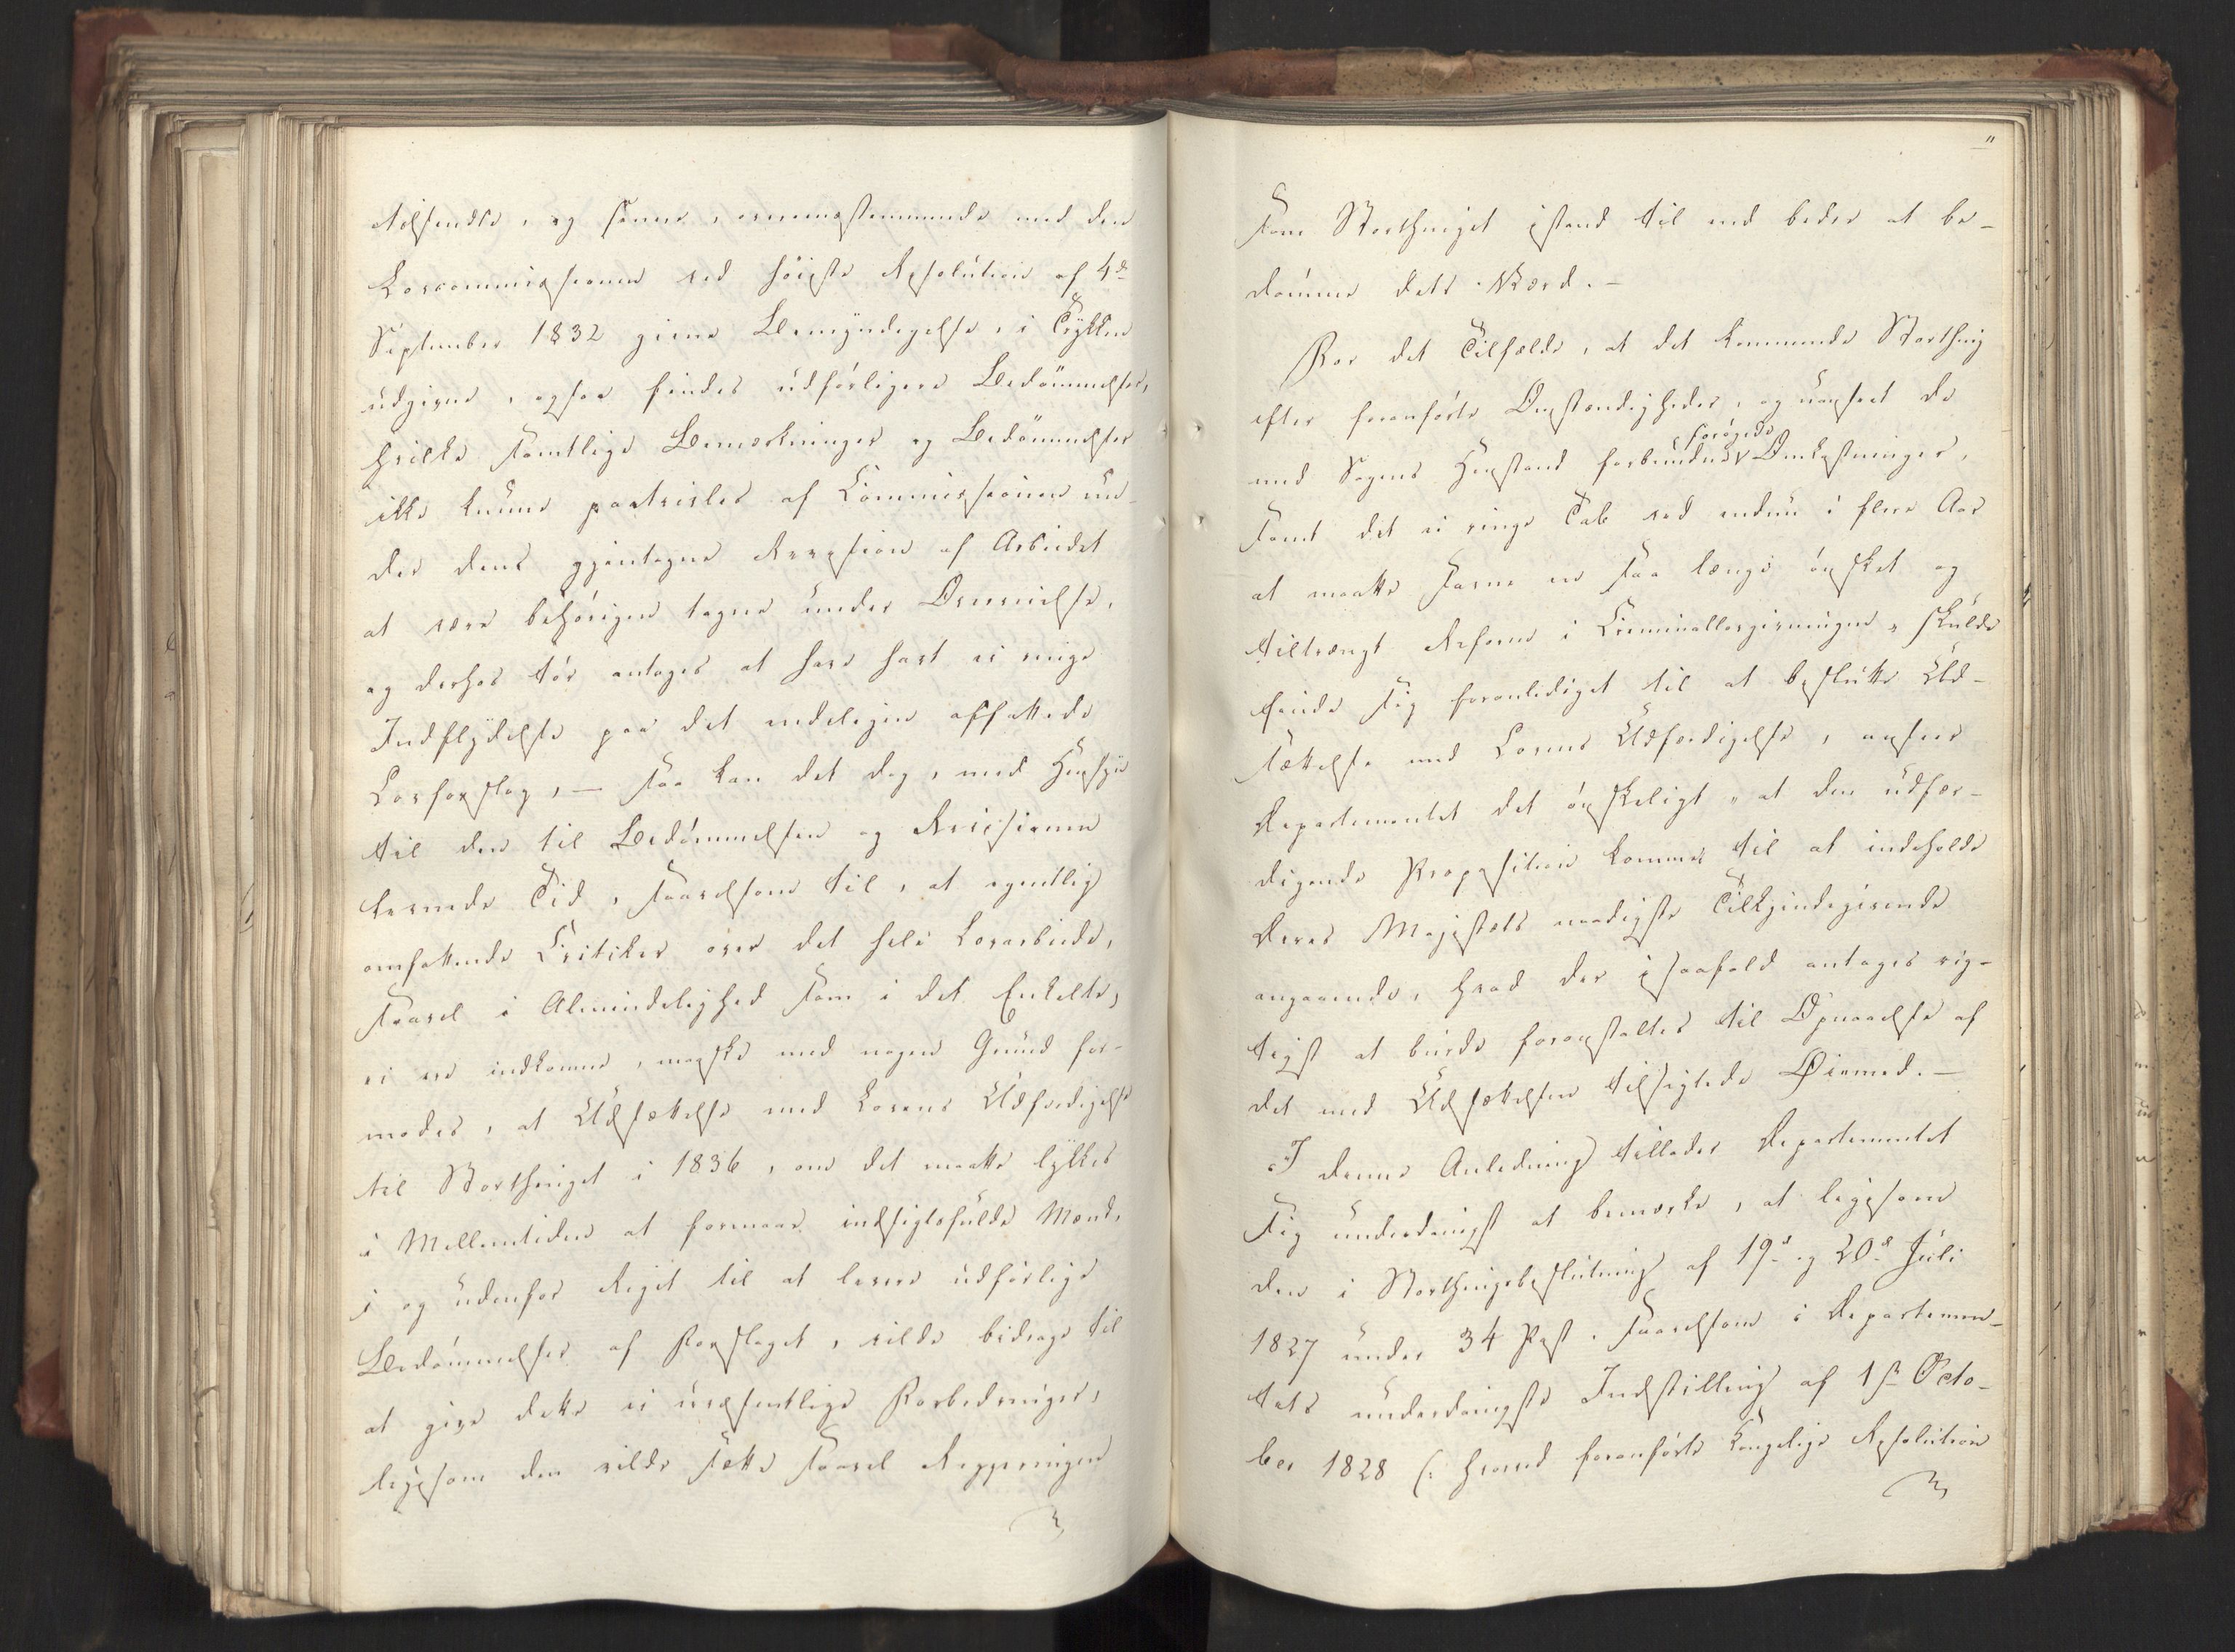 tilsendte, og senere, overeensstemmende med den
Lovcommissionen ved høieste Resolution af 4de
September 1832 givne Bemyndigelse, i Trykken
udgivne, ogsaa findes udførligere Bedømmelser,
hvilke samtlige Bemærkninger og Bedømmelser
ikke kunne paatvivles af Commissionen un-
der dens gjentagne Revision af Arbeidet
at være behørigen tagne under Overveielse,
og derhos tør antages at have havt ei ringe
Indflydelse paa det endeligen affattede
Lovforslag, — saa kan det dog, med Hensyn
til den til Bedømmelsen og Revisionen
levnede Tid, saavelsom til, at egentlig
omfattende Critiker over det hele Lovarbeide,
saavel i Almindelighed som i det Enkelte,
ei ere indkomne, maaske med nogen Grund for-
modes, at Udsættelse med Lovens Udfærdigelse
til Storthinget i 1836, om det maatte lykkes
i Mellemtiden at formaae indsigtsfulde Mænd,
i og udenfor Riget til at levere udførlige
Bedømmelser af Forslaget, vilde bidrage til
at give dette ei uvæsentlige Forbedringer,
ligesom den vilde sætte saavel Regjeringen
"
som Storthinget istand til end bedre at be-
dømme dets Værd. —
For det Tilfælde, at det kommende Storthing
efter foranførte Omstændigheder, og uanseet de
forøgede
med Sagens Henstand forbundne Omkostninger,
samt det ei ringe Tab ved endnu i flere Aar
at maatte savne en saa længe ønsket og
tiltrængt Reform i Criminallovgivningen, skulde
finde sig foranlediget til at beslutte Ud-
sættelse med Lovens Udfærdigelse, anseer
Departementet det ønskeligt, at den udfær-
digende Proposition kommer til at indeholde
Deres Majestæts naadigste Tilkjendegivende
angaaende, hvad der isaafald antages rig-
tigst at burde foranstaltes til Opnaaelse af
det med Udsættelsen tilsigtede Øiemed. —
I denne Anledning tillader Departementet
sig underdanigst at bemærke, at ligesom
den i Storthingsbeslutning af 19de og 20de Juli
1827 under 34 Post, saavelsom i Departemen-
tets underdanigste Indstilling af 1ste Octo-
ber 1828 (: hvorved foranførte Kongelige Resolution